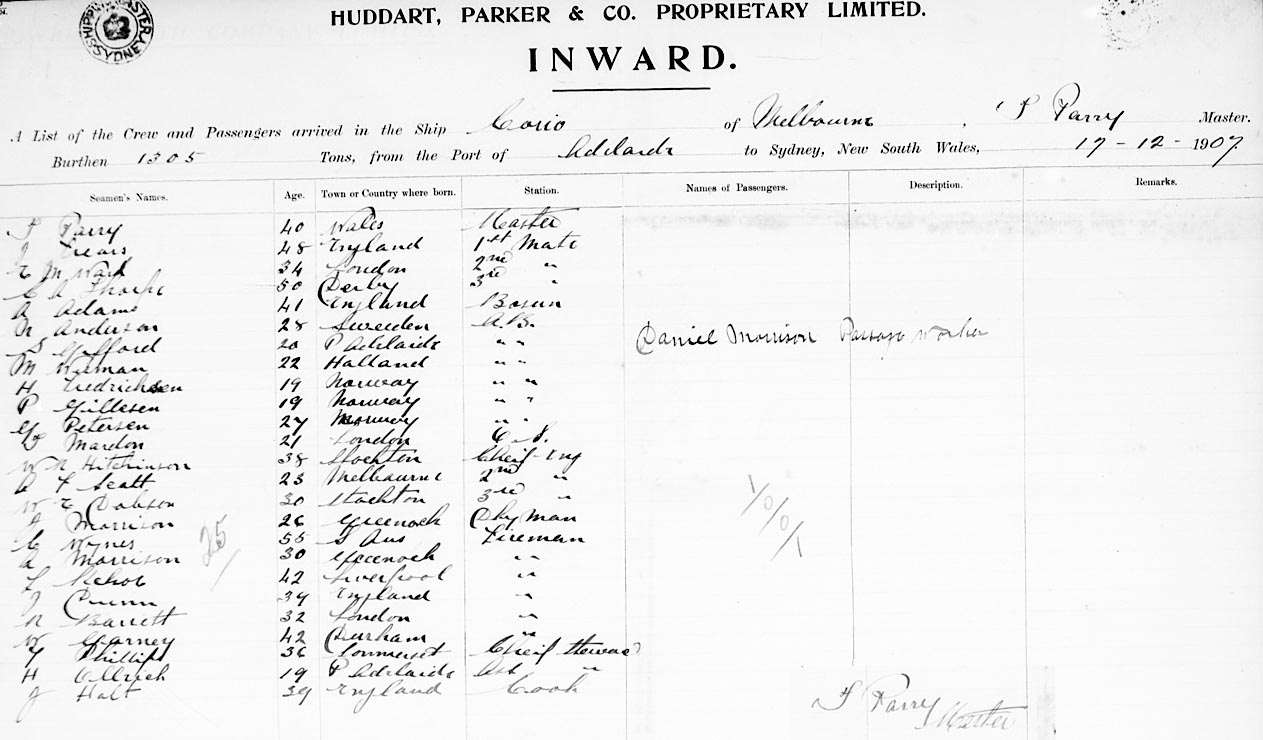 HUDDART, PARKER & CO. PROPRIETARY LIMITED.
INWARD.
A List of the Crew and Passengers arrived in the Ship Corio of Melbourne, F Parry Master.
Burthen 1305 Tons, from the Port of Adelaide to Sydney, New South Wales, 17-12-1907
Seamen's Names. Age. Town or Country where born. Station. Names of Passengers. Description. Remarks.
F Parry 40 Wales Master
J 48 England 1st Mate
E M Ward 34 London 2nd "
C A Thorpe 50 Derby 3rd "
A Adams 41 England Bosun
N Anderson 28 Sweeden A.B.
S Gifford 20 P Adelaide " " Daniel Morrison Passage worker
M 22 Halland " "
H Fredrichsen 19 Norway " "
P Gillesen 19 Norway " "
G Petersen 27 Norway " "
F Mardon 21 London O.S.
W N Hitchinson 38 Stockton Cheif Eng
A F Scott 23 Melbourne 2nd "
W E Dobson 30 Stockton 3rd "
J Morrison 26 Greenock Dky Man
C Wynes 55 S Aus Fireman
A Morrison 30 Greenock "
F 42 Liverpool "
J Quinn 39 England "
R Barrett 32 London "
W Garney 42 Durham "
F Phillips 36 Sommerset Cheif Steward
H Ullrich 19 P Adelaide Ast "
J Halt 39 England Cook
25
1/0/1
F Parry
Master